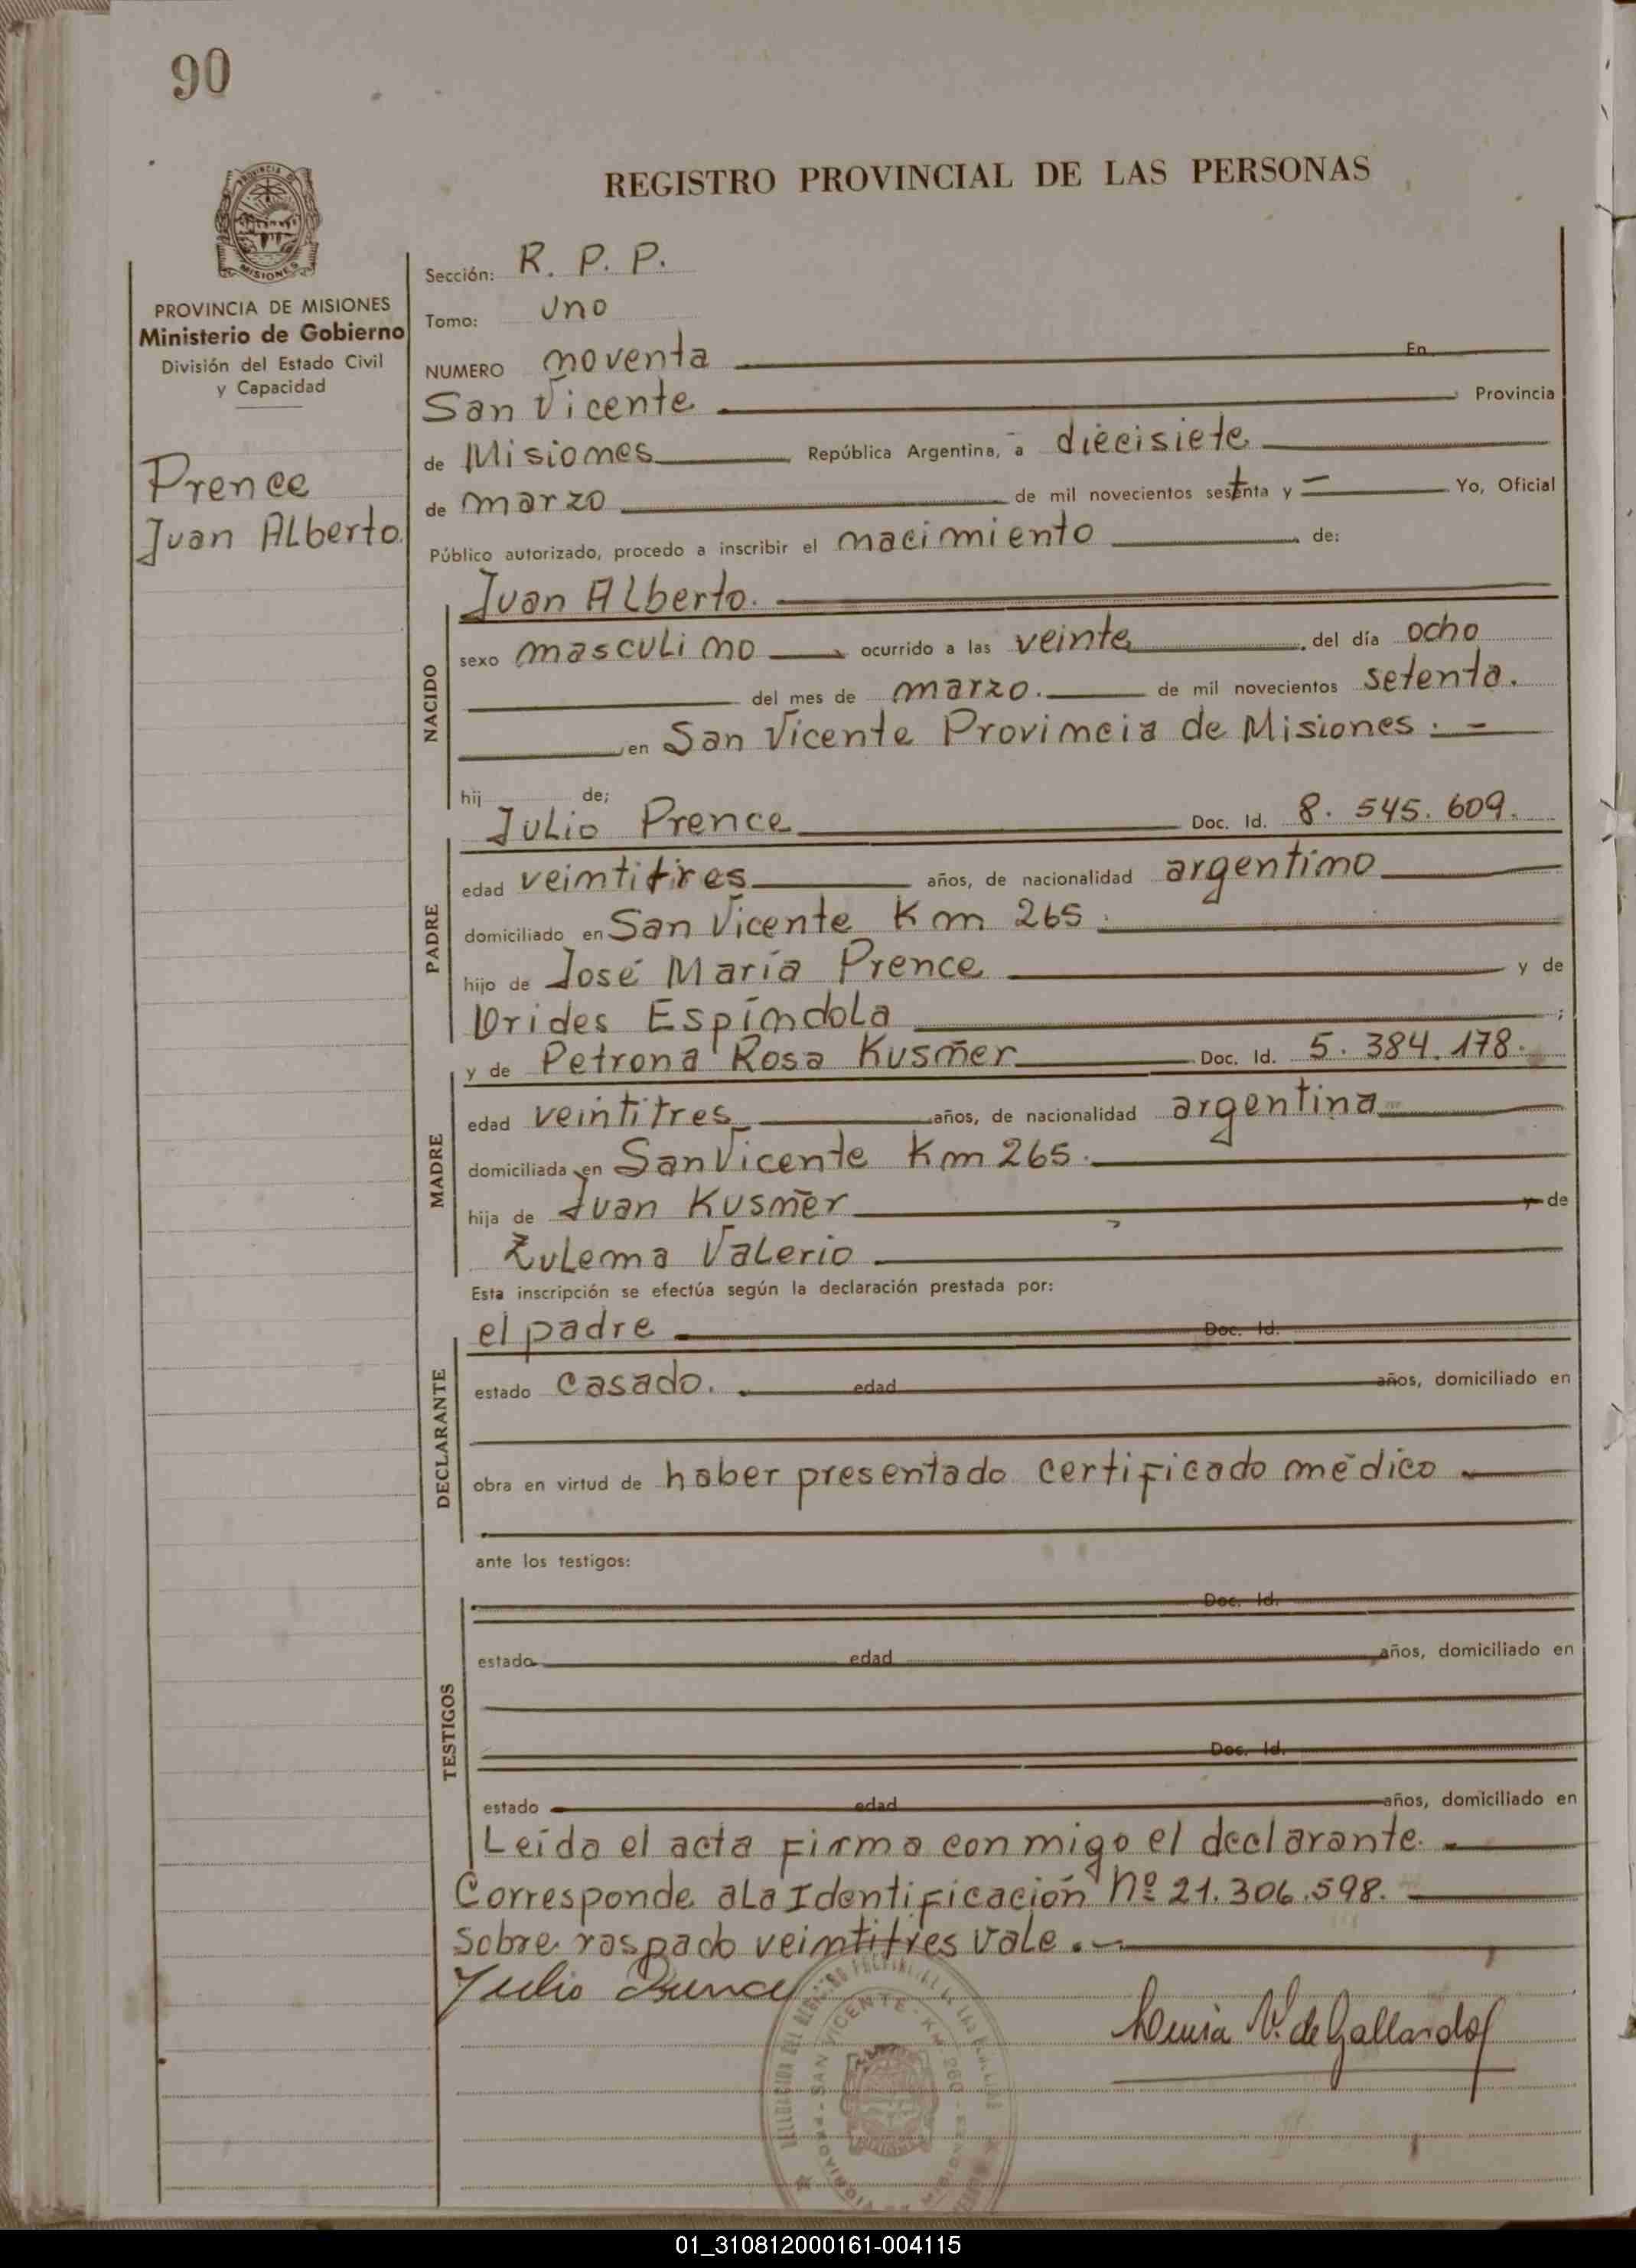 90
REGISTRO PROVINCIAL DE LAS PERSONAS
MISIONES
PROVINCIA DE MISIONES
Ministerio de Gobierno
División del Estado Civil
y Capacidad
Prence
Juan Alberto.
Sección: R. P. P.
Tomo: Uno
NUMERO noventa En
San Vicente Provincia
de Misiones República Argentina, a diecisiete
de marzo de mil novecientos setenta y — Yo, Oficial
Público autorizado, procedo a inscribir el nacimiento de:
Juan Alberto.
NACIDO
sexo masculino ocurrido a las veinte del día ocho
del mes de marzo. de mil novecientos setenta.
en San Vicente Provincia de Misiones. -
hij de;
Julio Prence Doc. Id. 8. 545. 609.
PADRE
edad veintitres años, de nacionalidad argentino
domiciliado en San Vicente Km 265.
hijo de José María Prence y de
Orides Espíndola ;
y de Petrona Rosa Kusmer Doc. Id. 5. 384. 178.
MADRE
edad veintitres años, de nacionalidad argentina
domiciliada en San Vicente Km 265.
hija de Juan Kusmer y de
Zulema Valerio
Esta inscripción se efectúa según la declaración prestada por:
el padre Doc. Id.
DECLARANTE
estado casado. edad años, domiciliado en
obra en virtud de haber presentado certificado médico
ante los testigos:
TESTIGOS
Doc. Id.
estado edad años, domiciliado en
Doc. Id.
estado edad años, domiciliado en
Leída el acta firma conmigo el declarante.
Corresponde a la Identificación Nº 21.306.598.
Sobre raspado veintitres vale. -
Julio Prence
Luisa V. de Gallardo
01_310812000161-004115